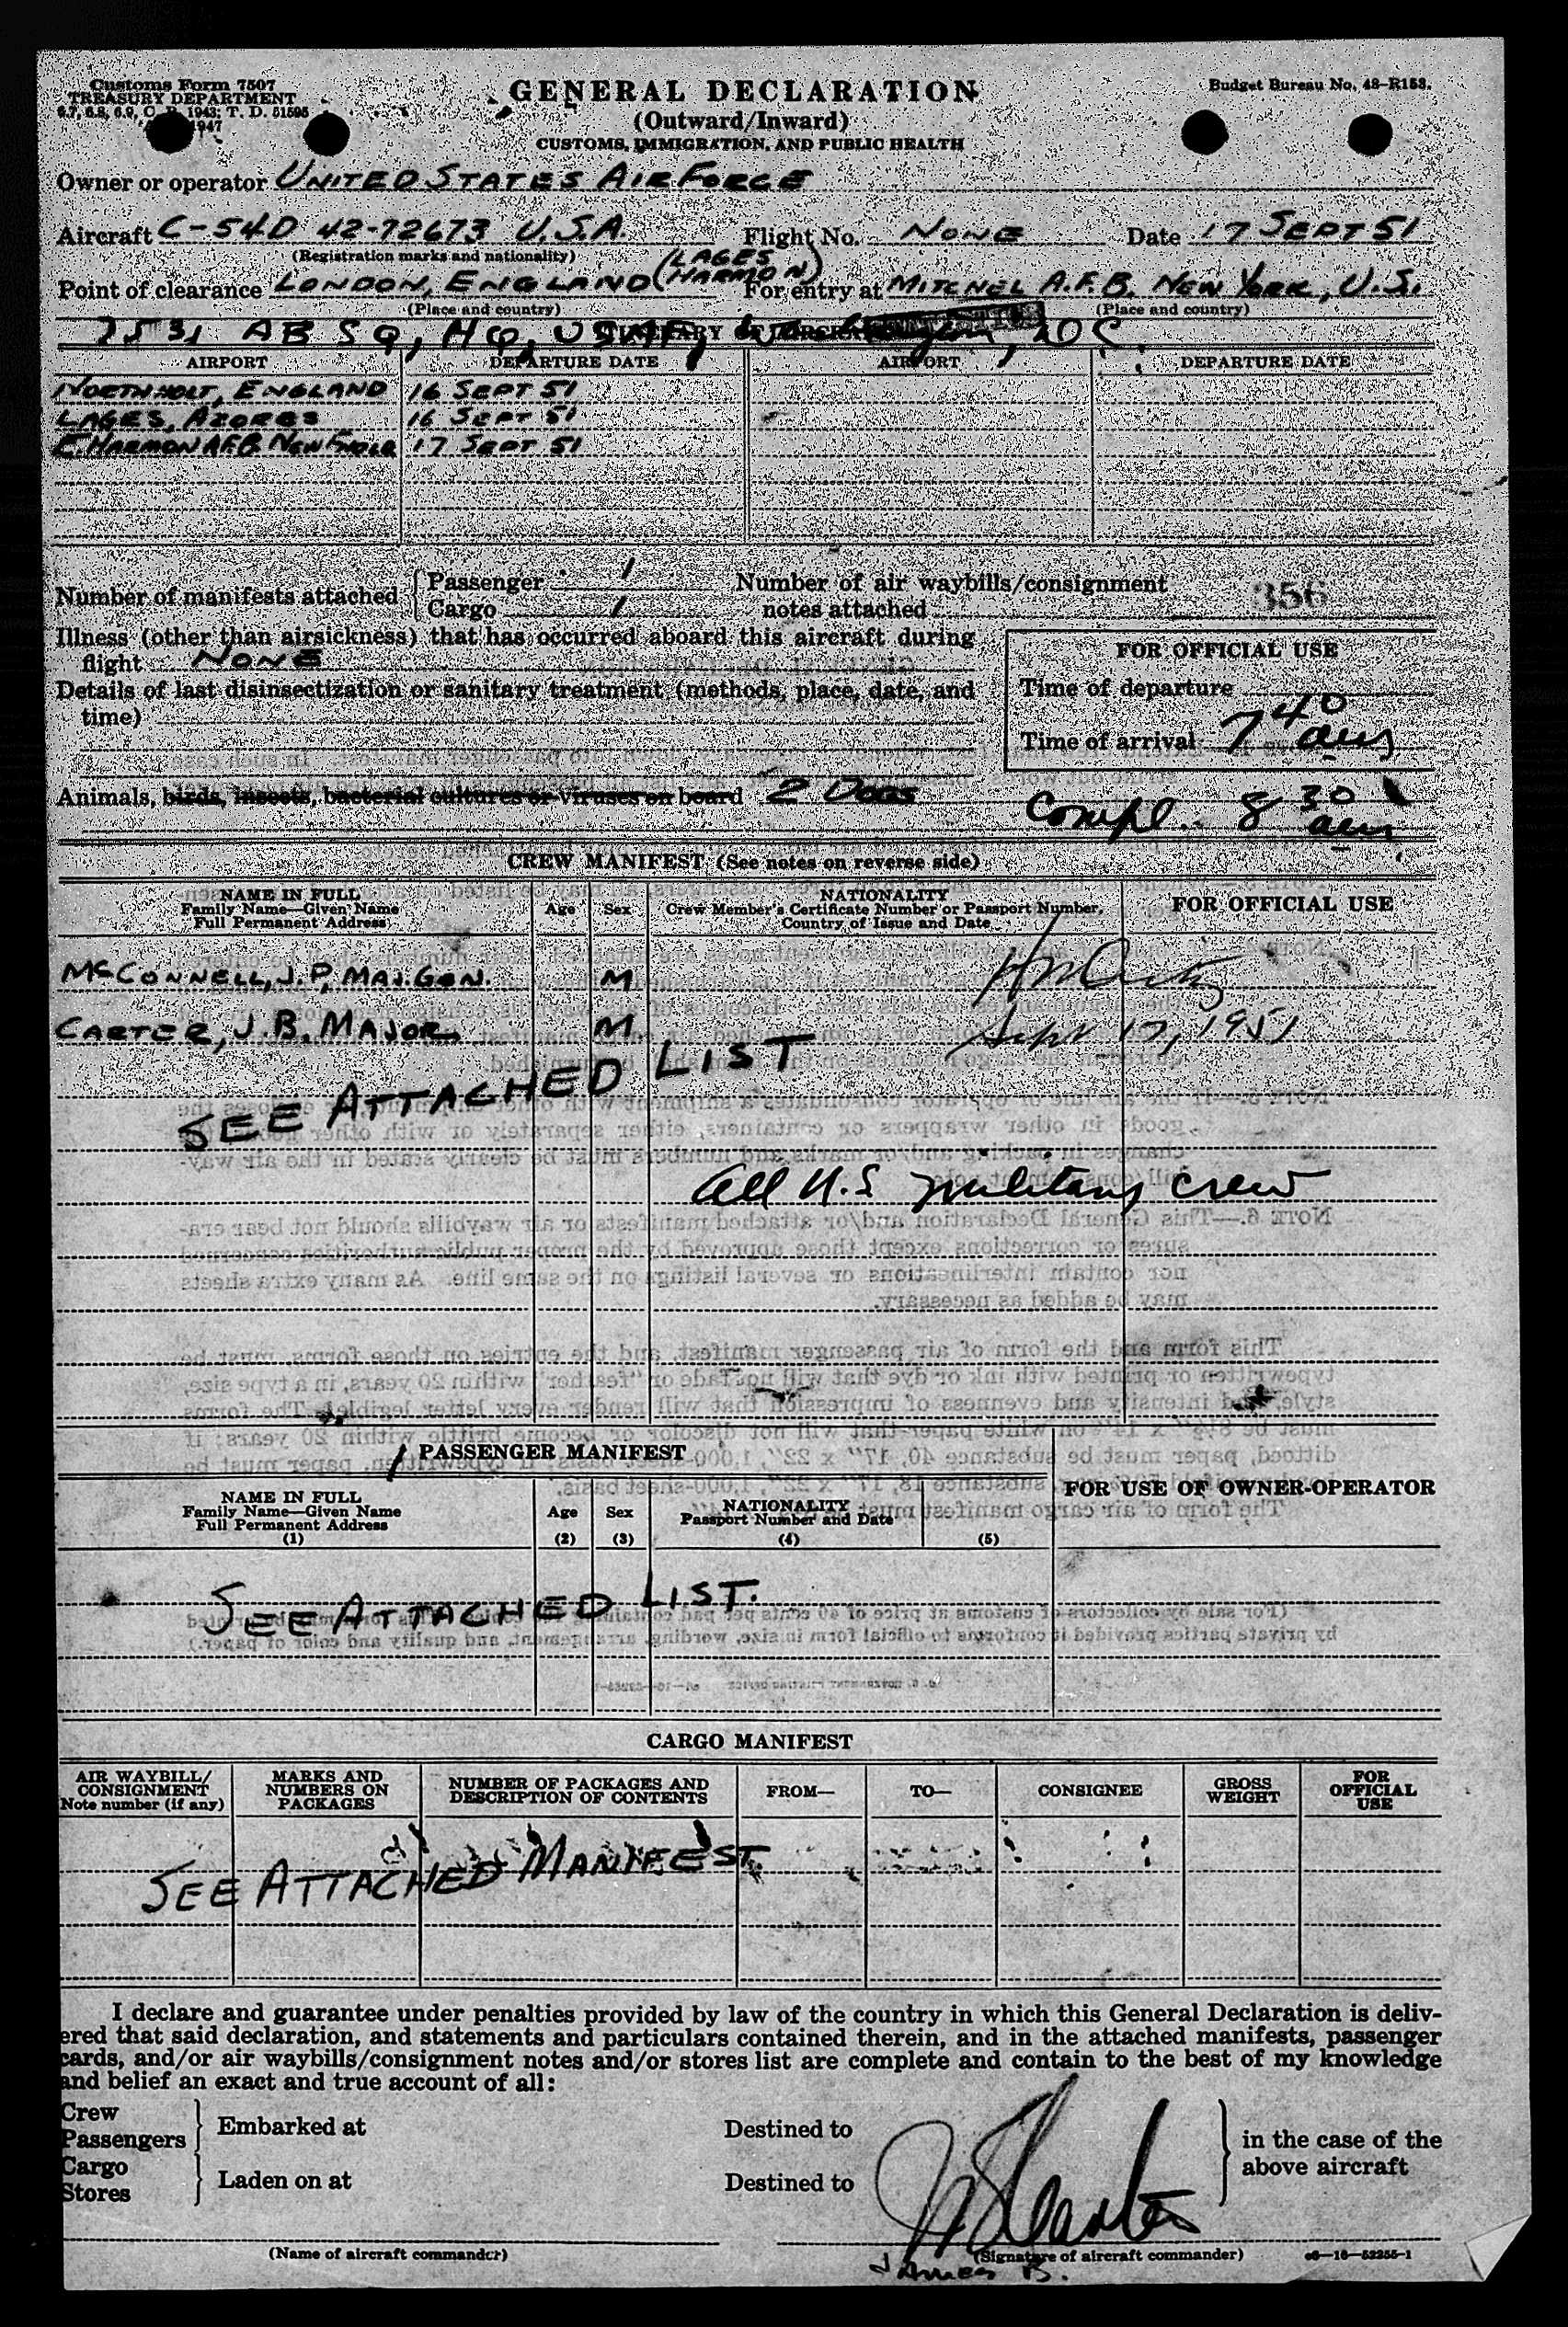 Customs Form 7507
TREASURY DEPARTMENT
6.7, 6.8, 6.9, C. R. 1943; T. D. 51595
1947
GENERAL DECLARATION
(Outward/Inward)
CUSTOMS, IMMIGRATION, AND PUBLIC HEALTH
Budget Bureau No. 48-R153.
Owner or operator UNITED STATES AIR FORCE
Aircraft C-54D 42-72673 U.S.A. Flight No. NONE Date 17 SEPT 51
(Registration marks and nationality)
Point of clearance LONDON, ENGLAND (LAGES HARMON) For entry at MITCHEL A.F.B. NEW YORK, U.S.
(Place and country) (Place and country)
7531 AB SQ, HQ, USAF, Washington, DC.
AIRPORT DEPARTURE DATE AIRPORT DEPARTURE DATE
NORTHHOLT, ENGLAND 16 SEPT 51
LAGES, AZORES 16 SEPT 51
E. HARMON AFB NEWFNDLD 17 SEPT 51
Number of manifests attached { Passenger 1
Cargo 1
Number of air waybills/consignment
notes attached
356
Illness (other than airsickness) that has occurred aboard this aircraft during
flight NONE
Details of last disinsectization or sanitary treatment (methods, place, date, and
time)
FOR OFFICIAL USE
Time of departure
Time of arrival 7 40 am
Animals, birds, insects, bacterial cultures or viruses on board 2 DOGS
Compl. 8 30 am
CREW MANIFEST (See notes on reverse side)
NAME IN FULL
Family Name—Given Name
Full Permanent Address
Age
Sex
NATIONALITY
Crew Member's Certificate Number or Passport Number,
Country of Issue and Date
FOR OFFICIAL USE
McCONNELL, J. P, MAJ. GEN. M
CARTER, J. B. MAJOR M
Sept 17, 1951
SEE ATTACHED LIST
All U.S military crew
PASSENGER MANIFEST
NAME IN FULL
Family Name—Given Name
Full Permanent Address
(1)
Age
(2)
Sex
(3)
NATIONALITY
Passport Number and Date
(4)
(5)
FOR USE OF OWNER-OPERATOR
SEE ATTACHED LIST.
CARGO MANIFEST
AIR WAYBILL/
CONSIGNMENT
Note number (if any)
MARKS AND
NUMBERS ON
PACKAGES
NUMBER OF PACKAGES AND
DESCRIPTION OF CONTENTS
FROM—
TO—
CONSIGNEE
GROSS
WEIGHT
FOR
OFFICIAL
USE
SEE ATTACHED MANIFEST.
I declare and guarantee under penalties provided by law of the country in which this General Declaration is deliv-
ered that said declaration, and statements and particulars contained therein, and in the attached manifests, passenger
cards, and/or air waybills/consignment notes and/or stores list are complete and contain to the best of my knowledge
and belief an exact and true account of all:
Crew
Passengers } Embarked at Destined to
Cargo
Stores } Laden on at Destined to
in the case of the
above aircraft
(Name of aircraft commander)
(Signature of aircraft commander)
James B.
16—52255-1